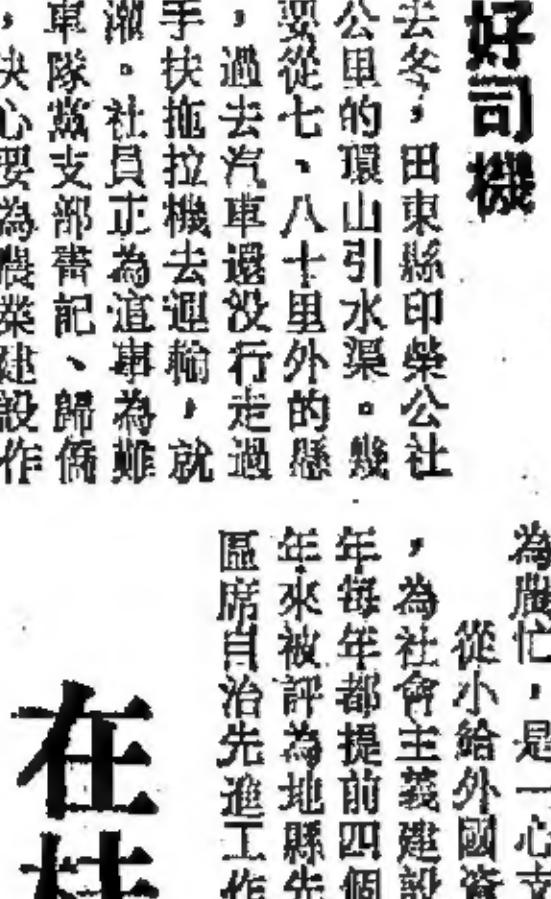 好司機
去冬,田東縣印榮公社
公里的環山引水渠。幾
要從七、八十里外的懸
,過去汽車還沒行走過
手扶拖拉機去運輸,就
瀨。社員正為這事為難
車隊黨支部書記、歸僑
,決心要為農業建設作
為嚴忙,是一心支
從小給外國資
,為社會主義建設
年每年都提前四個
年來被評為地縣先
區席自治先進工作
在桂